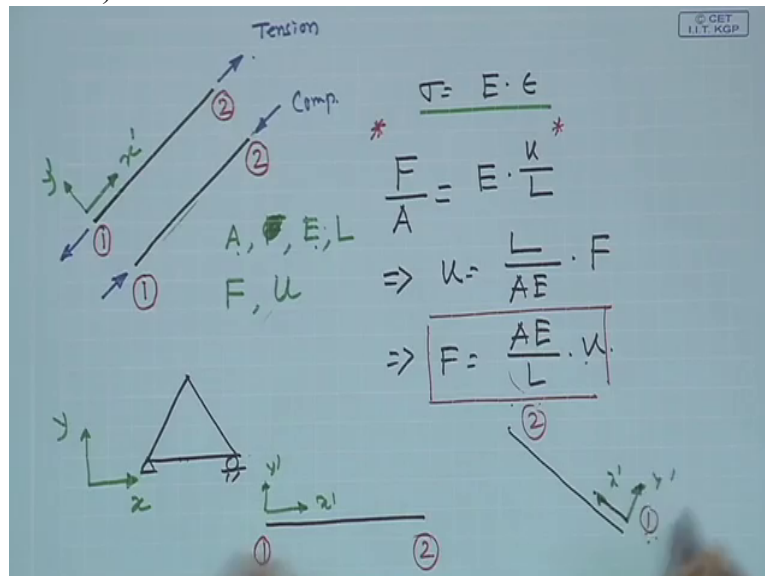 © CET
I.I.T. KGP
Tension
②
Comp.
②
x'
y'
①
①
A, E, L
F, u
σ = E · ε
* F/A = E · u/L *
=> u = L/AE · F
=> F = AE/L · u
y
x
y'
x'
①
②
②
x'
y'
①